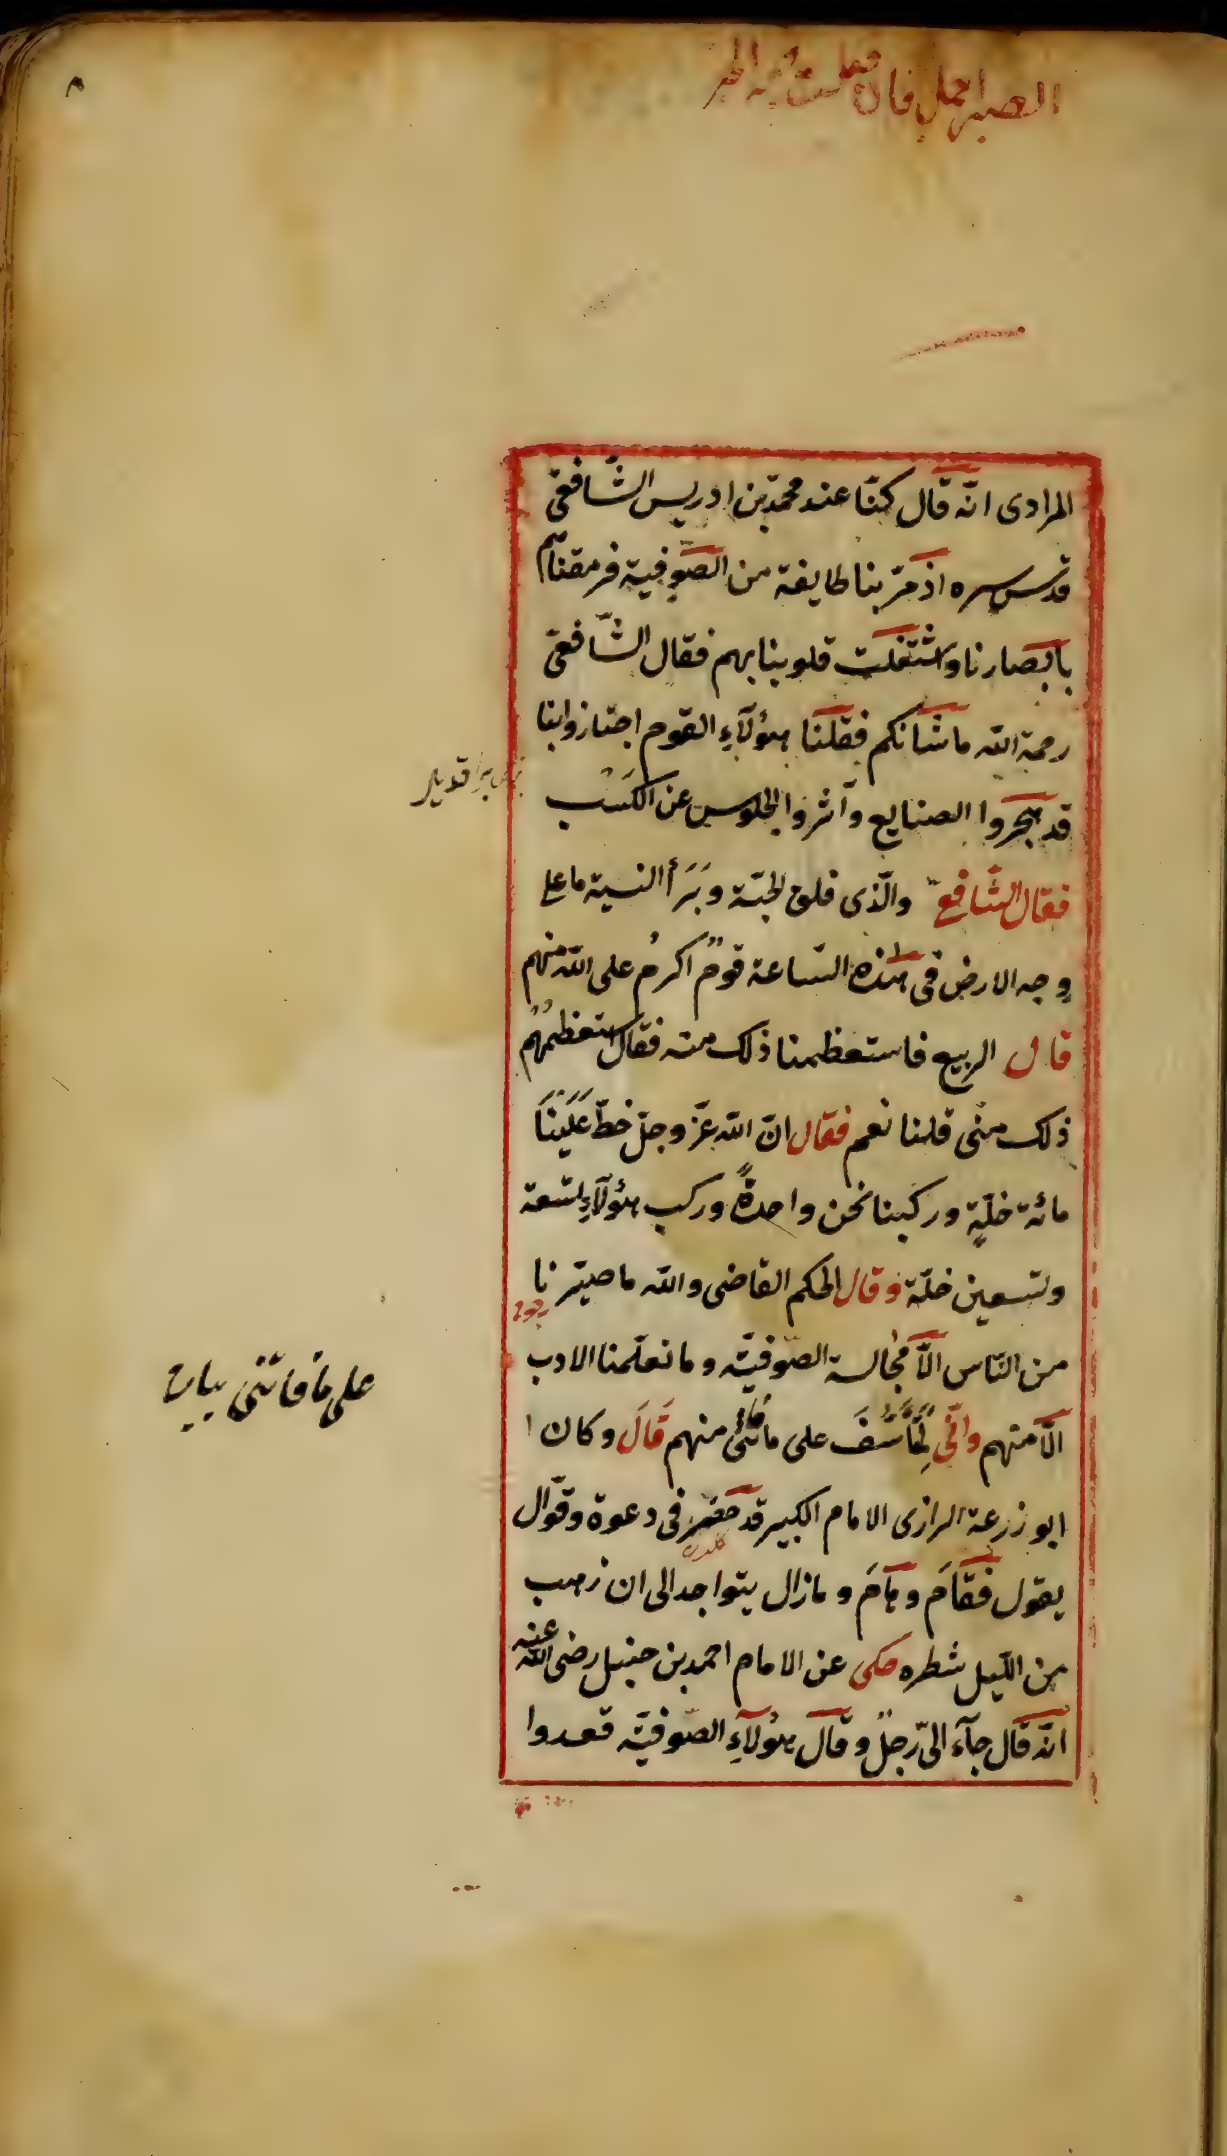 ٨
المرادى انّه قال كنّا عند محمّد بن ادريس الشّافعىّ
قدّس سره اذ مرّ بنا طايفة من الصّوفيّة فرمقناهم
بابصارنا واشتغلت قلوبنا بهم فقال الشّافعىّ
رحمة اللّه ما شانكم فقلنا هؤلآءِ القوم اجتازوا بنا
قد هجروا الصنايع وآثروا الجلوس عن الكَسْب
فقال الشّافعىّ والّذى فلق الحبّة وبَرَأَ النسمة ما على
وجه الارض فى هذه السّاعة قومٌ اكرمُ على اللّه منهم
قال الربيع فاستعظمنا ذلك منه فقال استعظمتُم
ذلك منّى قلنا نعم فقال انّ اللّه عزّ وجلّ خطّ عَلَيْنَا
مائة خلّةٍ وركبنا نحن واحدةً وركب هؤلآءِ تسعة
وتسعين خلّة وقال الحكم القاضى واللّه ما صيّرنا
من النّاس الّا مجالسة الصّوفيّة وما تعلّمنا الادب
الّا منهم وانّى لَتَأَسَّفَ على ما فاتنى منهم قَالَ وكان ا
على ما فاتنى بيان
ابو زرعة الرازى الامام الكبير قد حضر فى دعوة وقوّال
يقول فقَامَ وهَامَ وما زال يتواجد الى ان ذهب
من اللّيل شطره حكى عن الامام احمد بن حنبل رضى اللّه عنه
انّه قال جآء الىّ رجلٌ وقال هؤلآءِ الصّوفيّة قعدوا